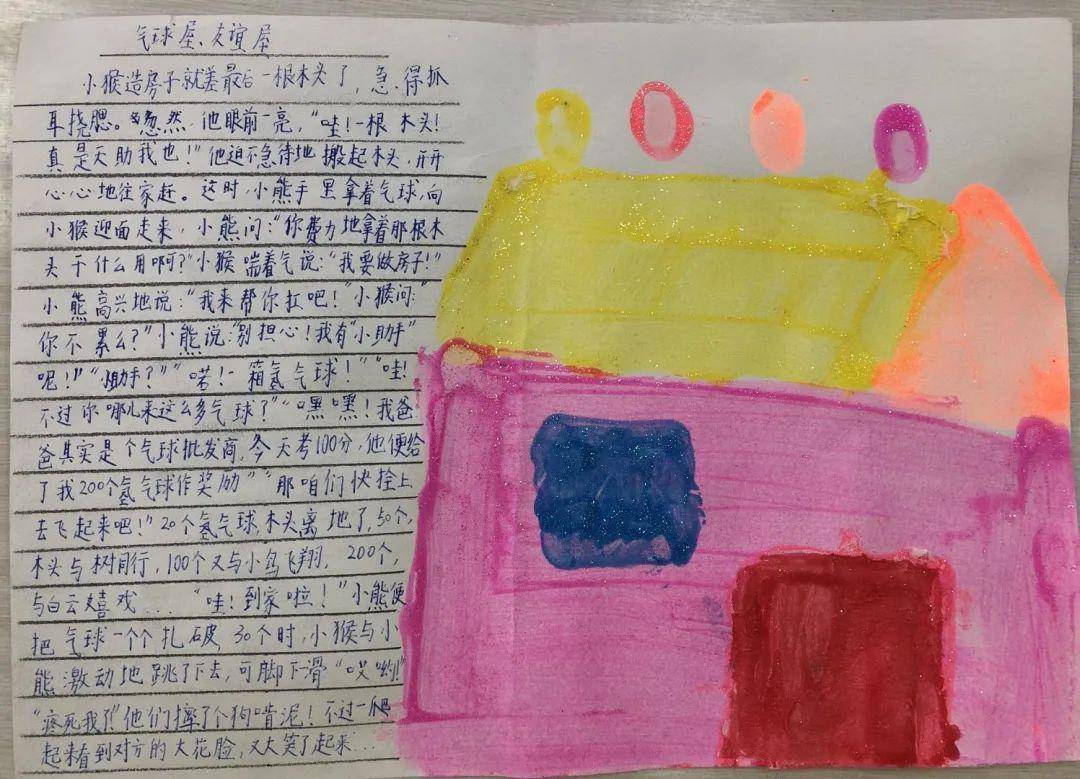 气球屋、友谊屋
小猴造房子就差最后一根木头了，急得抓
耳挠腮。忽然，他眼前一亮，“哇！一根木头！
真是天助我也！”他迫不急待地搬起木头，开开
心心地往家赶。这时，小熊手里拿着气球，向
小猴迎面走来，小熊问：“你费力地拿着那根木
头干什么用啊？”小猴喘着气说：“我要做房子！”
小熊高兴地说：“我来帮你扛吧！”小猴问：“
你不累么？”小熊说：“别担心！我有“小助手”
呢！”“小助手？”“喏！一箱氢气球！”“哇！
不过你哪儿来这么多气球了”“嘿嘿！我爸
爸其实是个气球批发商，今天考100分，他便给
了我200个氢气球作奖励”“那咱们快拴上
去飞起来吧！”20个氢气球，木头离地了，50个，
木头与树同行，100个又与小鸟飞翔，200个，
与白云嬉戏……“哇！到家啦！”小熊便
把气球一个个扎破，30个时，小猴与小
熊激动地跳了下去，可脚下一滑“哎哟！”
“疼死我了”他们摔了个狗啃泥！不过一爬
起来看到对方的大花脸，又大笑了起来…